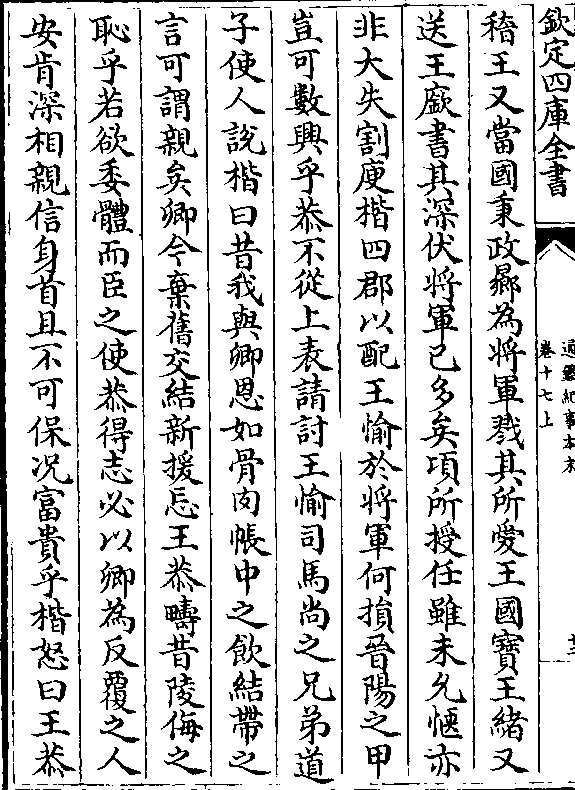 欽定四庫全書
通鑑紀事本末
卷十七上
稽王又當國秉政曏為將軍戮其所愛王國寶王緒又
送王廞書其深伏將軍已多矣項所授任雖未允愜亦
非大失割庾楷四郡以配王愉於將軍何損晉陽之甲
豈可數興乎恭不從上表請討王愉司馬尚之兄弟道
子使人說楷曰昔我與卿恩如骨肉帳中之飲結帶之
言可謂親矣卿今棄舊交結新援忘王恭疇昔陵侮之
恥乎若欲委體而臣之使恭得志必以卿為反覆之人
安肯深相親信身首且不可保况富貴乎楷怒曰王恭